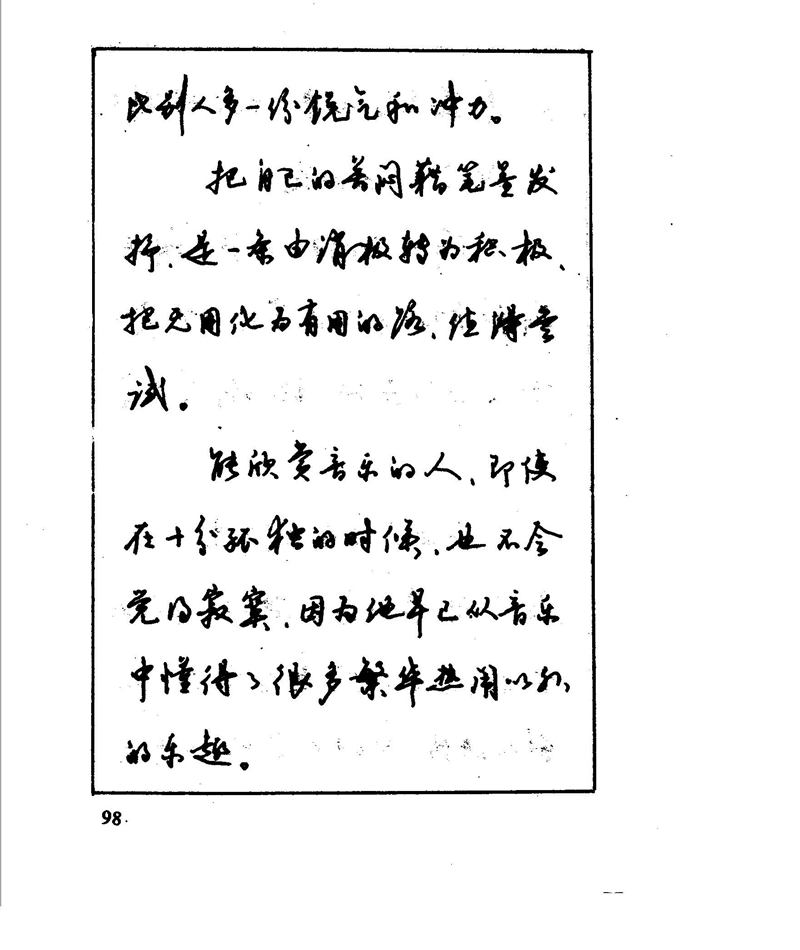 比别人多一份锐气和冲力。
把自己的苦闷藉笔墨发
抒，是一条由消极转为积极、
把无用化为有用的路，值得尝
试。
能欣赏音乐的人，即使
在十分孤独的时候，也不会
觉得寂寞，因为他早已从音乐
中懂得了很多繁华热闹以外
的乐趣。
98